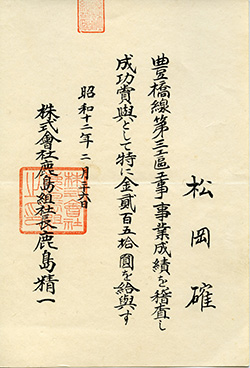 松岡確
豊橋線第三區工事事業成績を稽査し
成功賞與として特に金貳百五拾圓を給與す
昭和十二年二月二十六日
株式會社鹿島組社長鹿島精一